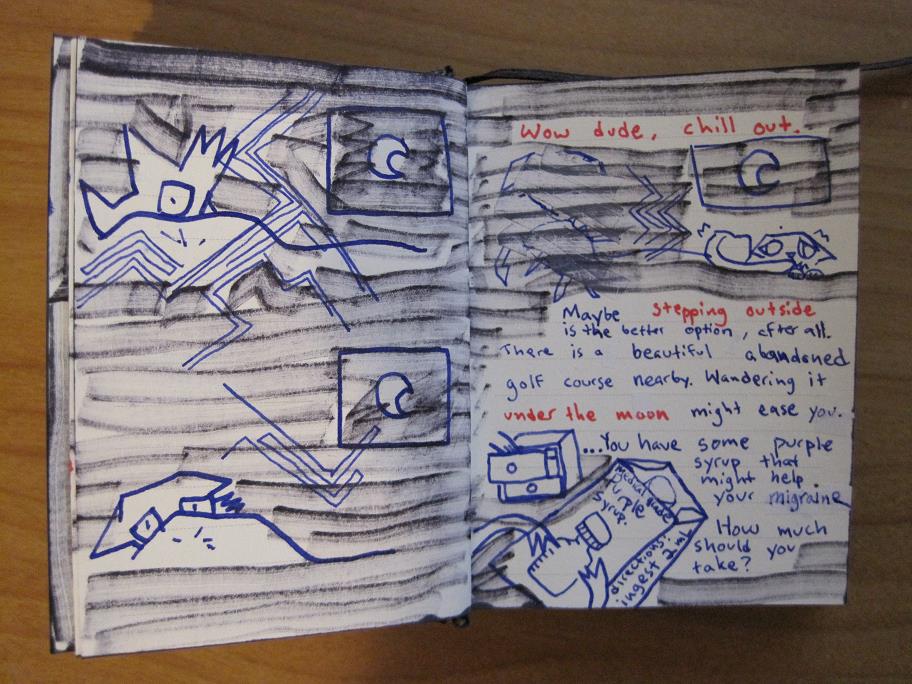 Wow dude, chill out.
Maybe stepping outside
is the better option, after all.
There is a beautiful abandoned
golf course nearby. Wandering it
under the moon might ease you.
...You have some purple
syrup that
might help
your migraine.
How much
should you
take?
Medical Grade
Purple
Syrup.
directions:
ingest 2 ml